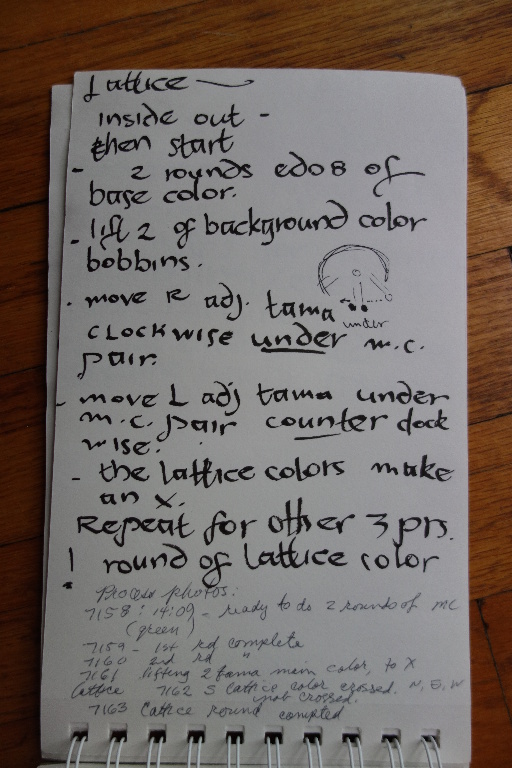 Lattice
inside out -
then start
- 2 rounds edo 8 of
base color.
- lift 2 of background color
bobbins.
• move R adj. tama
under
clockwise under m.c.
pair.
- move L adj tama under
m.c. pair counter clock
wise.
- the lattice colors make
an X.
Repeat for other 3 prs.
1 round of lattice color
Process photos:
7158: 14:09 - ready to do 2 rounds of MC
(green)
7159 - 1st rd complete
7160 2nd rd "
7161 lifting 2 tama main color, to X
lattice 7162 S lattice color crossed. N, E, W
not crossed.
7163 Lattice round compted